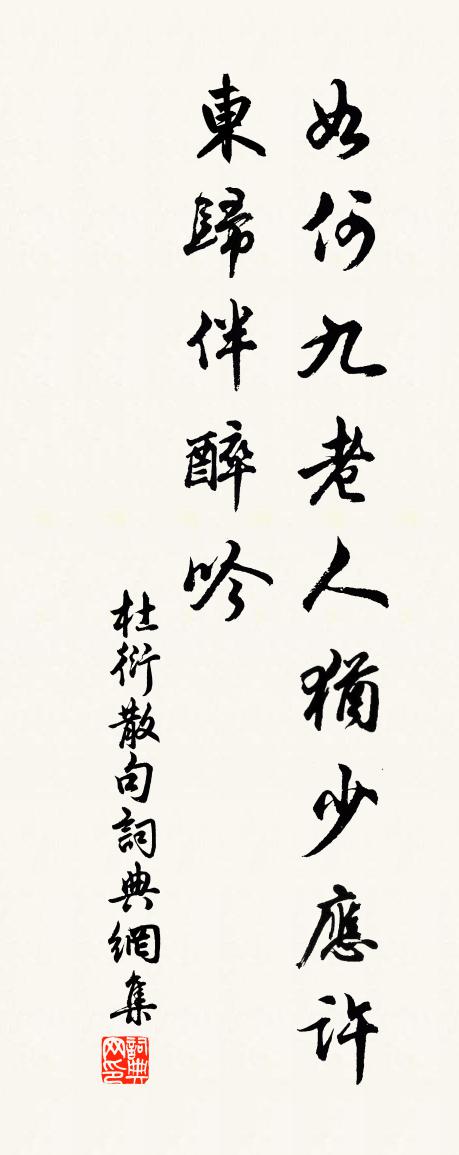 如何九老人猶少應許
東歸伴醉吟
杜衍散句詞典網集
詞典网印